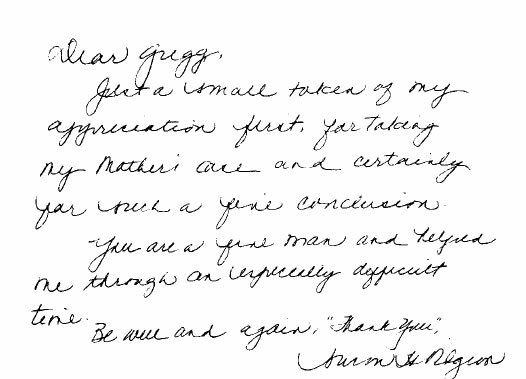 Dear Gregg,
Just a small token of my
appreciation first, for taking
my Mother's case and certainly
for such a fine conclusion.
You are a fine man and helped
me through an especially difficult
time.
Be well and again, "Thank You",